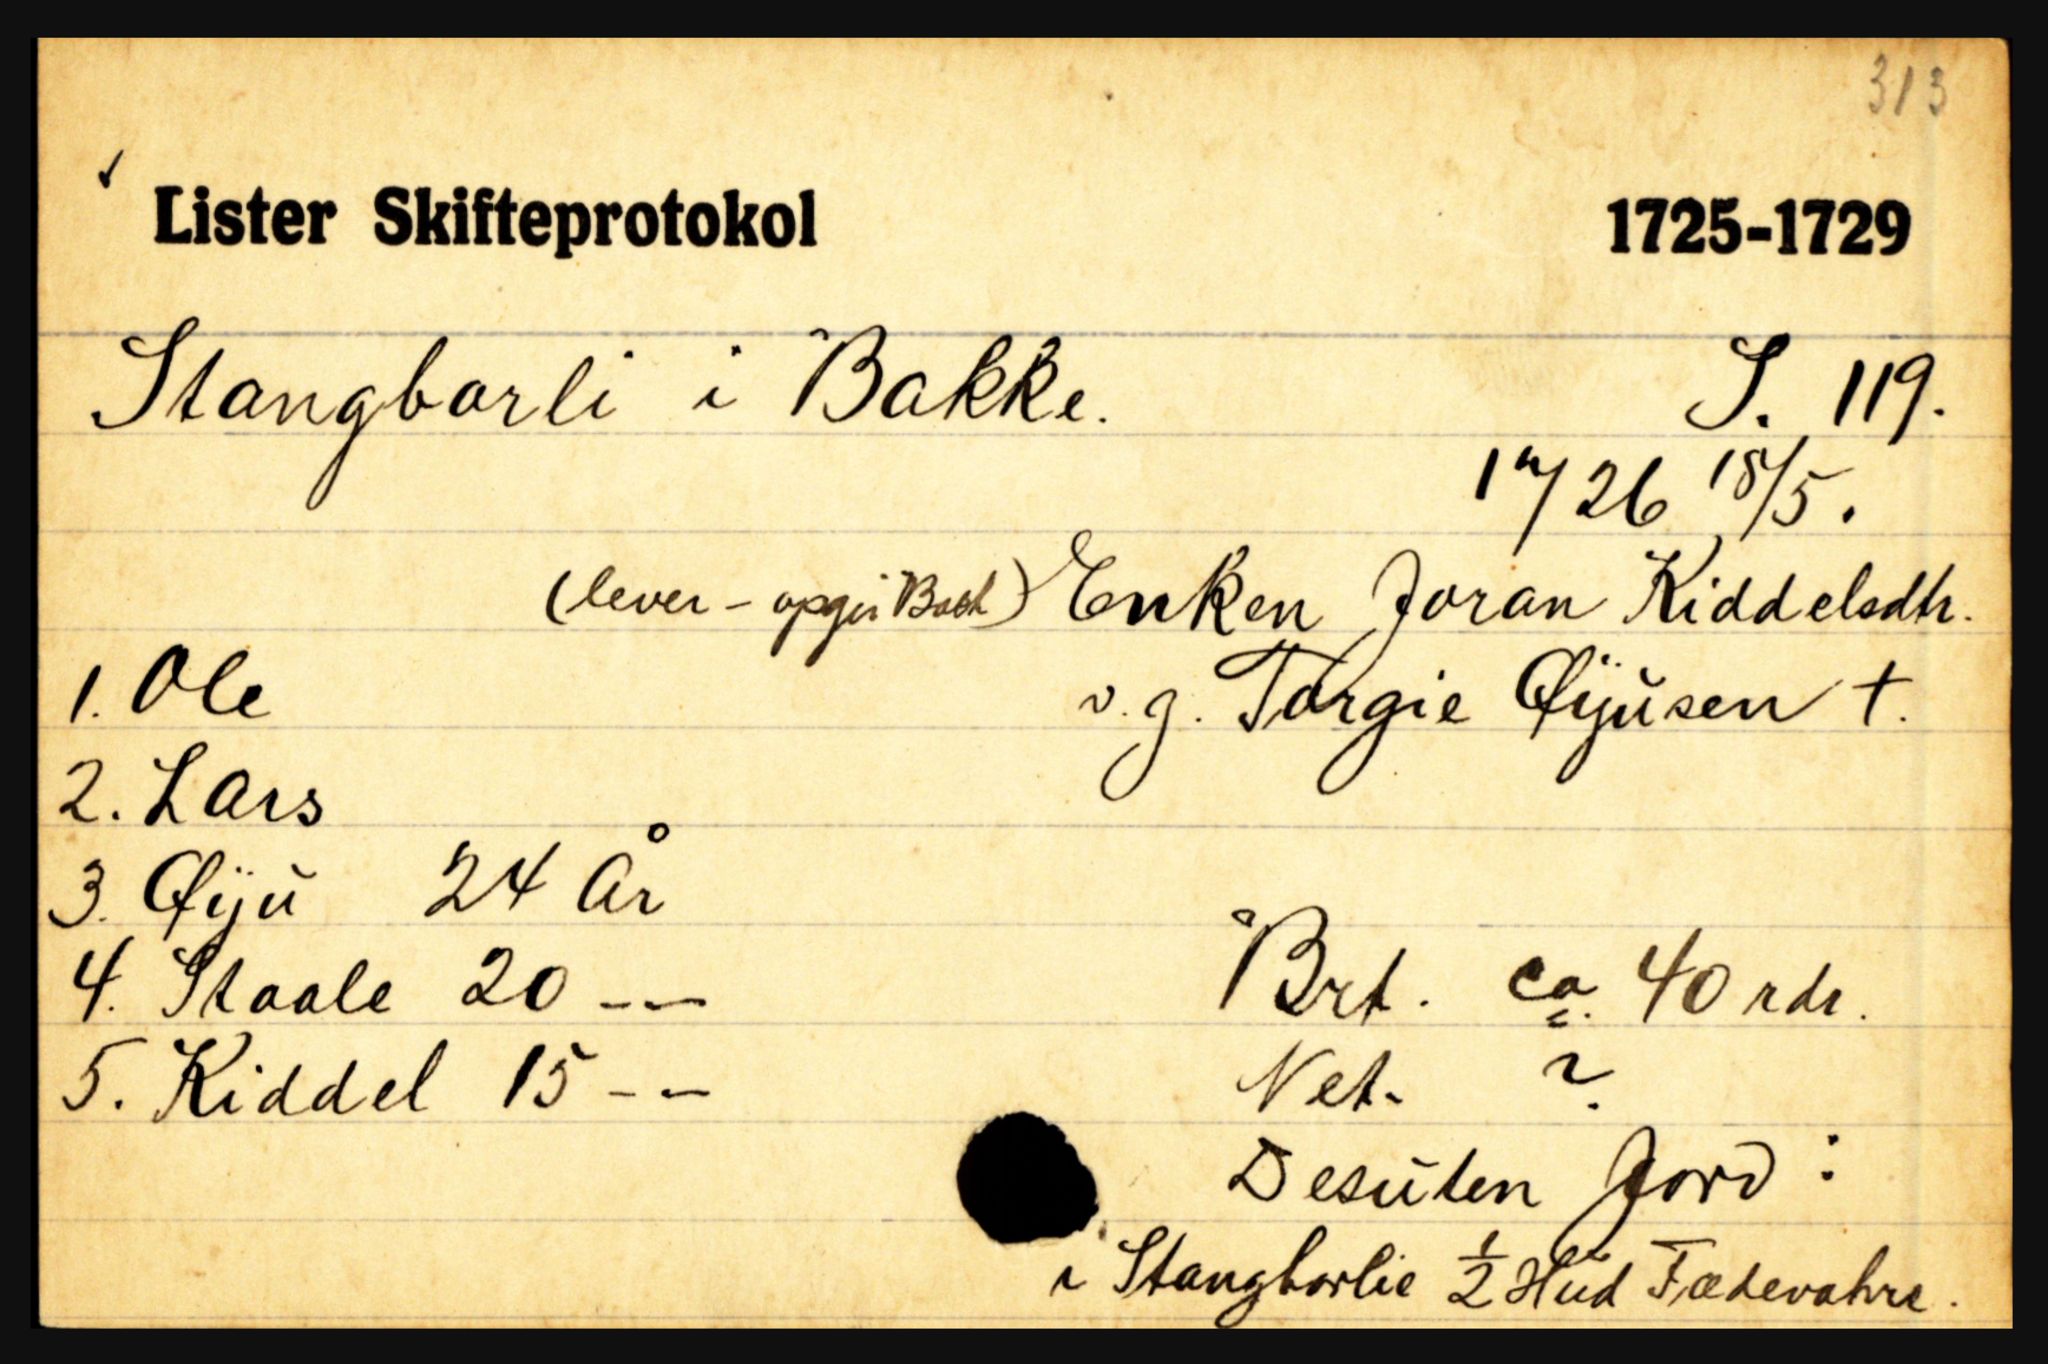 313
Lister Skifteprotokol 1725-1729
Stangborli i Bakke. S. 119.
17/26 18/5.
(lever - opgir Boet) Enken Joran Kiddelsdtr.
1. Ole v. g. Torgie Øijŭsen †.
2. Lars
3. Øijŭ 24 År
4. Staale 20 -- Brt. ca. 40 rdr.
5. Kiddel 15 -- Net. ?
Desŭten Jord:
i Stangborlie 1/2 Hŭd Fædevahre.